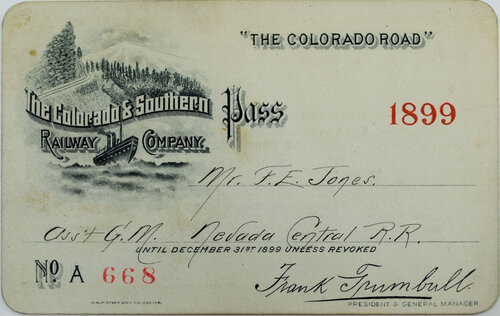 "THE COLORADO ROAD"
The Colorado & Southern
RAILWAY COMPANY.
Pass
1899
Mr. F. E. Jones.
Ass't G.M. Nevada Central R.R.
UNTIL DECEMBER 31ST 1899 UNLESS REVOKED
No A 668
Frank Trumbull.
PRESIDENT & GENERAL MANAGER.